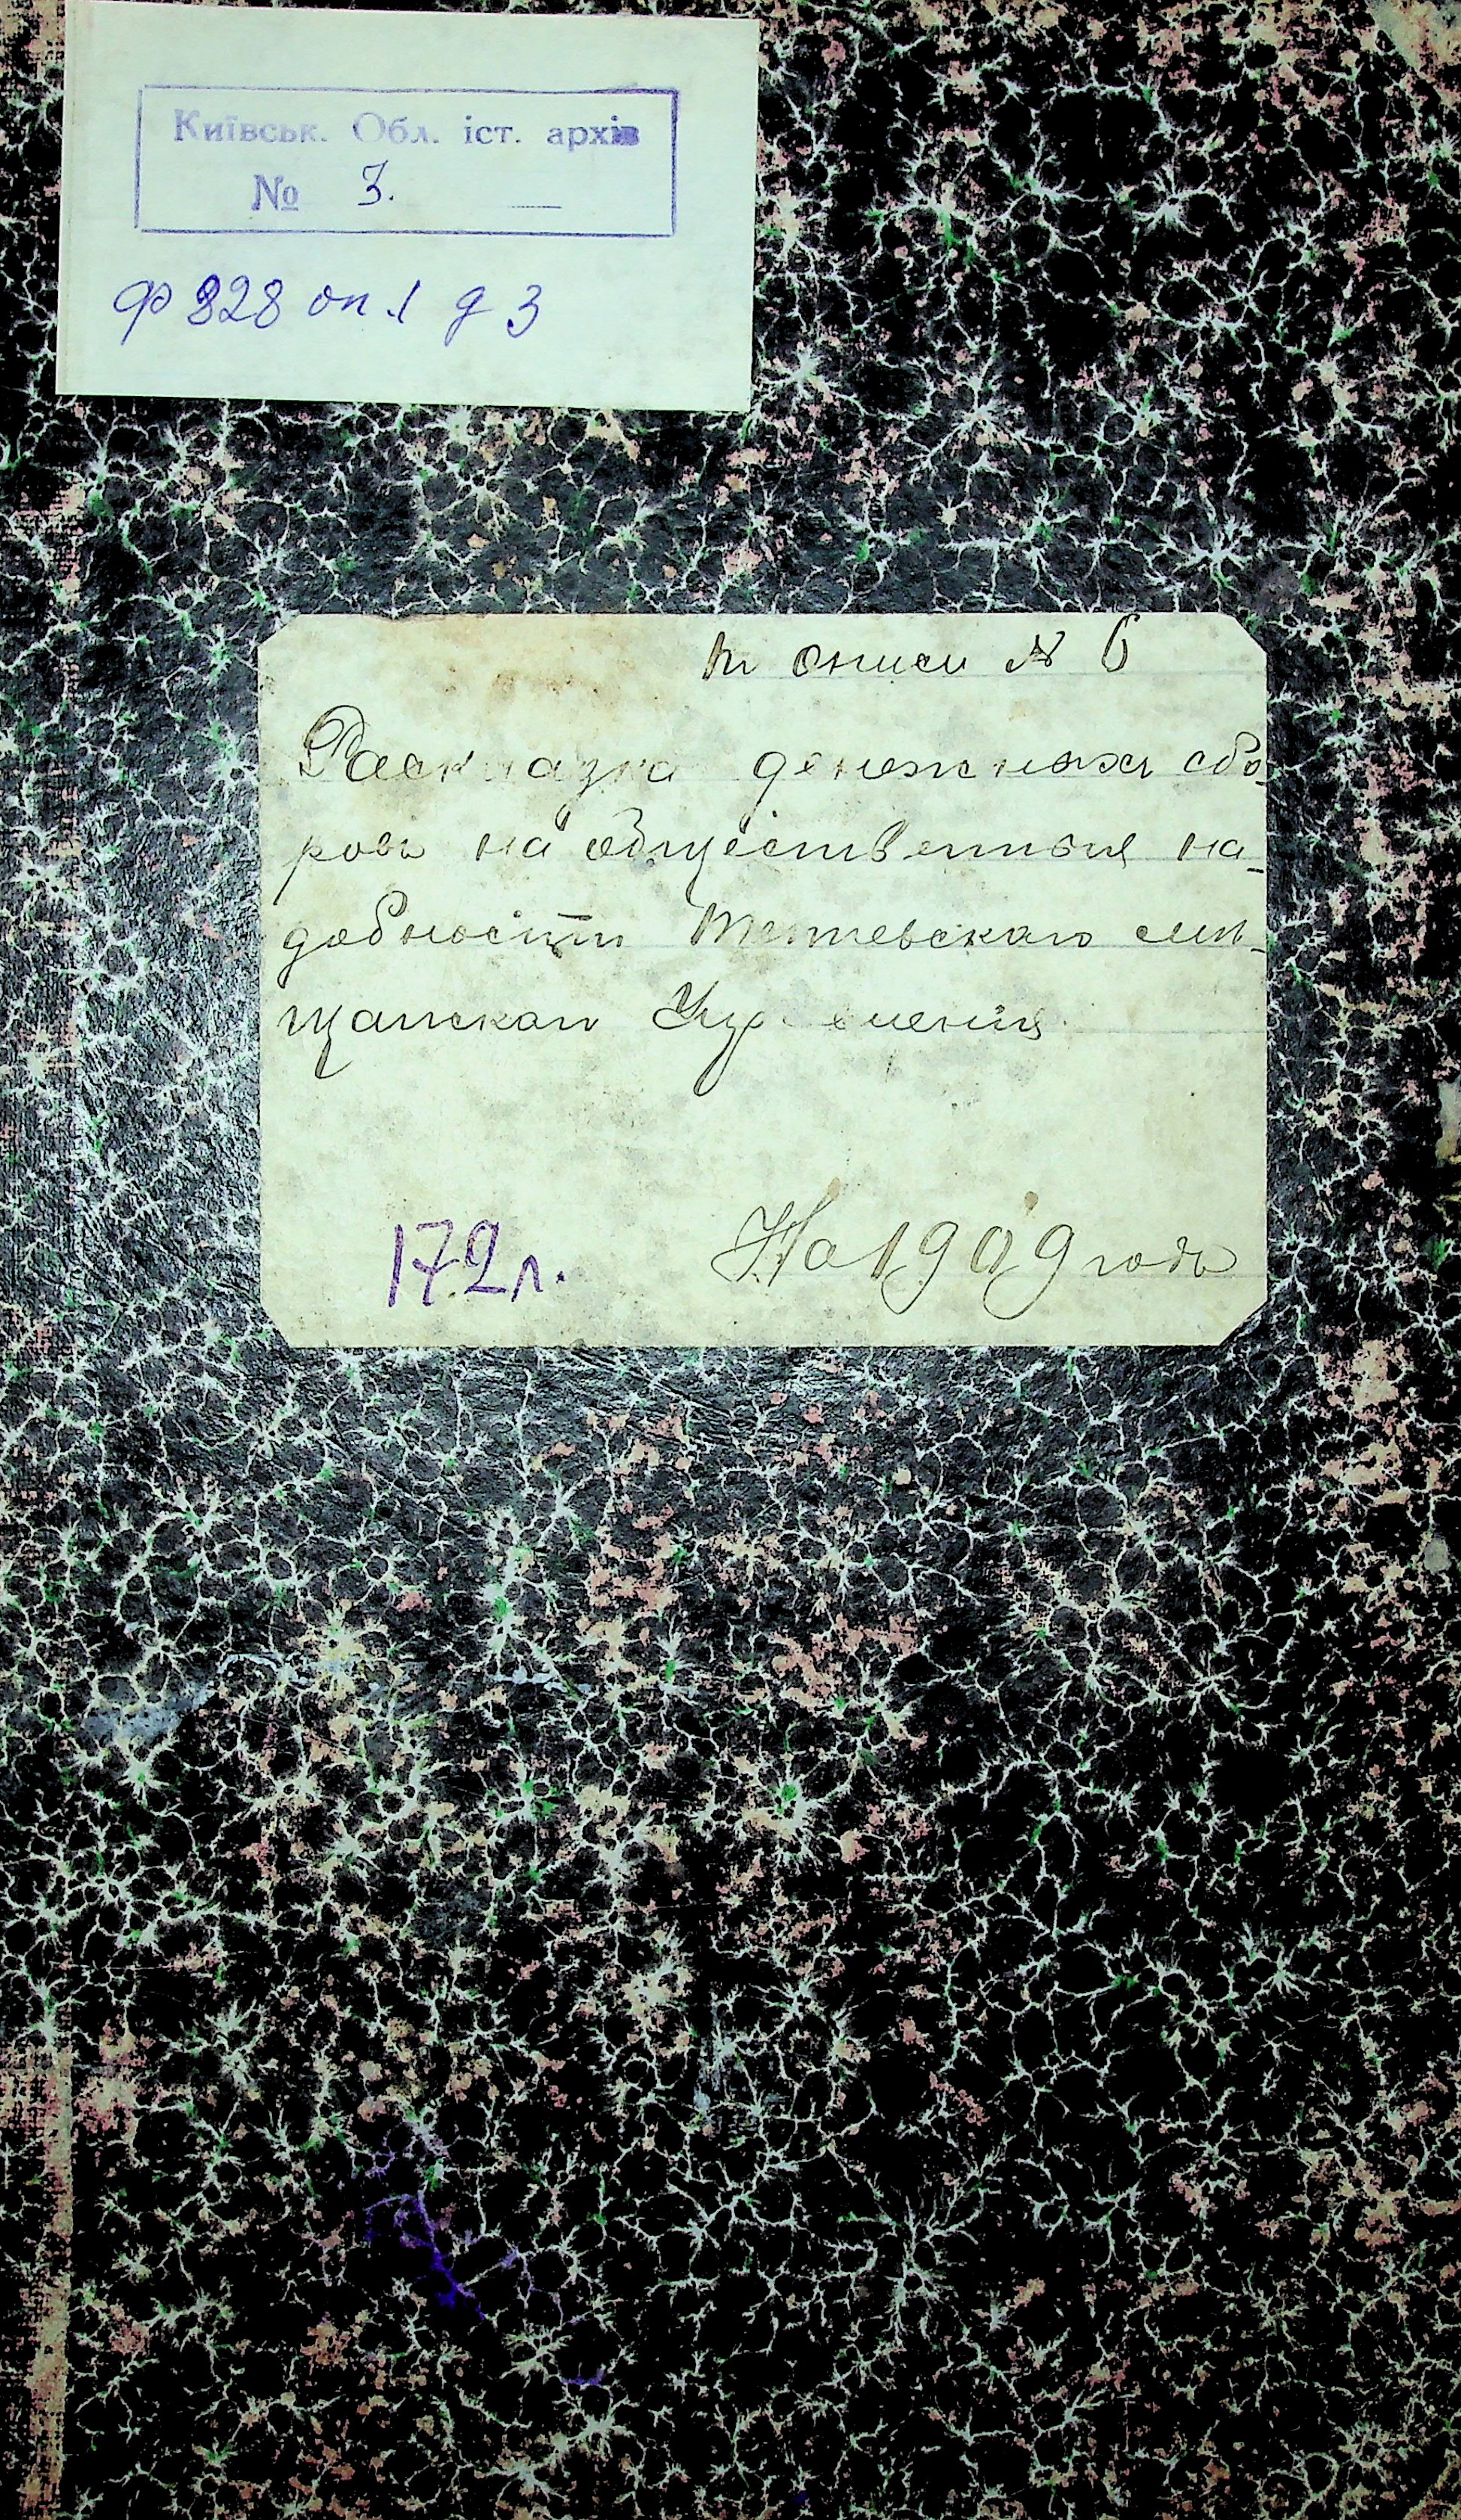 Київськ. Обл. іст. архів
№ 3.
ф 828 оп.1 д 3
по описи № 6
Раскладка денежныхъ сбо-
ровъ на общественныя на-
добности Тетіевскаго мѣ-
щанскаго Управленія
172 л.
На 1909 годъ